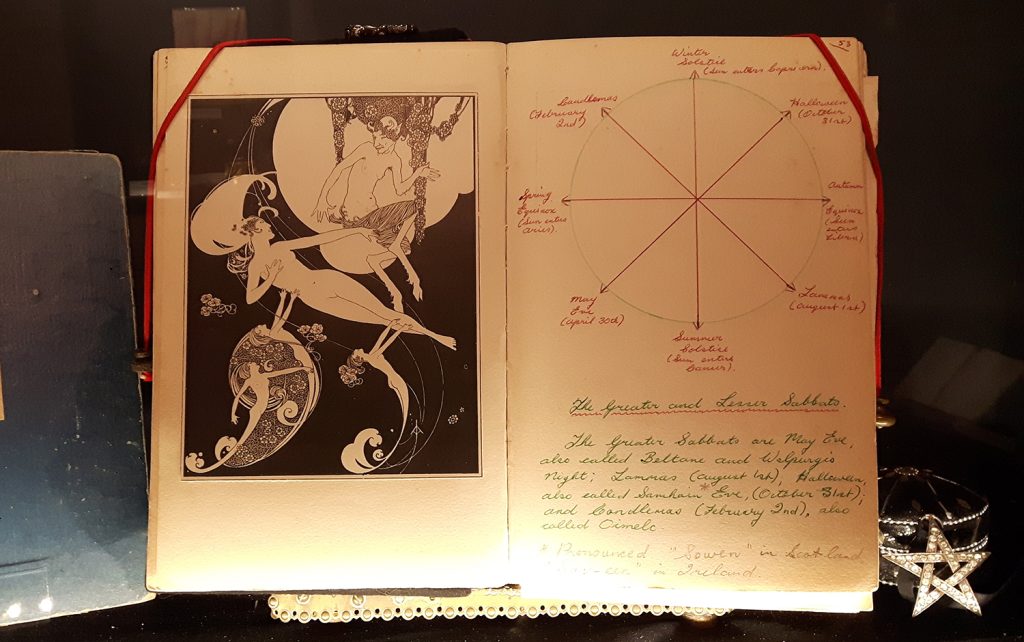 53
Winter
Solstice
(Sun enters Capricorn).
Candlemas
(February
2nd)
Halloween
(October
31st)
Spring
Equinox
(Sun enters
Aries).
Autumn
Equinox
(Sun
enters
Libra)
May
Eve
(April 30th)
Lammas
(August 1st)
Summer
Solstice
(Sun enters
Cancer).
The Greater and Lesser Sabbats.
The Greater Sabbats are May Eve,
also called Beltane and Walpurgis
Night; Lammas (August 1st), Halloween,
also called Samhain * Eve, (October 31st);
and Candlemas (February 2nd), also
called Oimelc.
* Pronounced "Sowen" in Scotland
in Ireland